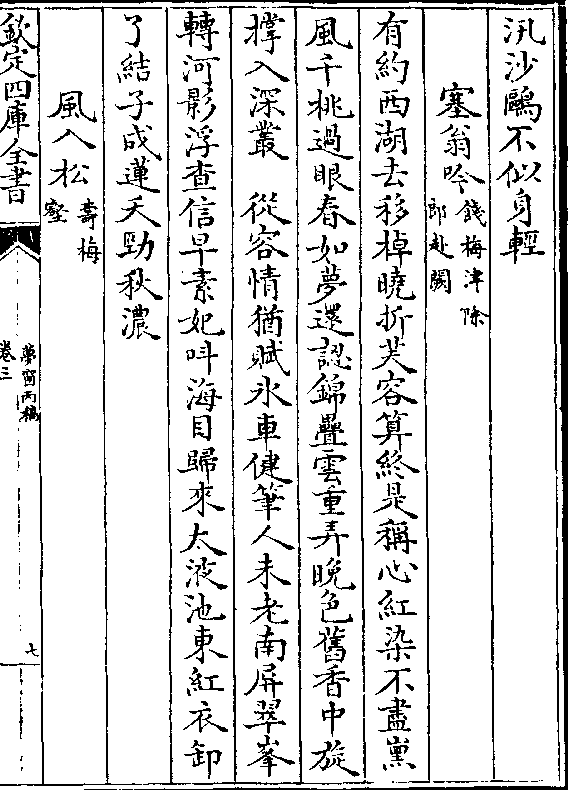 汎沙鷗不似身輕
塞翁吟錢梅津除郎赴闕
有約西湖去移棹曉折芙容算終是稱心紅染不盡薫
風千桃過眼春如夢還認錦疊雲重弄晚色舊香中旋
撑入深叢　從容情猶賦氷車健筆人未老南屏翠峯
轉河影浮查信早素妃叫海目歸來太液池東紅衣卸
了結子成蓮天勁秋濃
風入松壽梅壑
欽定四庫全書
夢窗丙稿
卷三
七